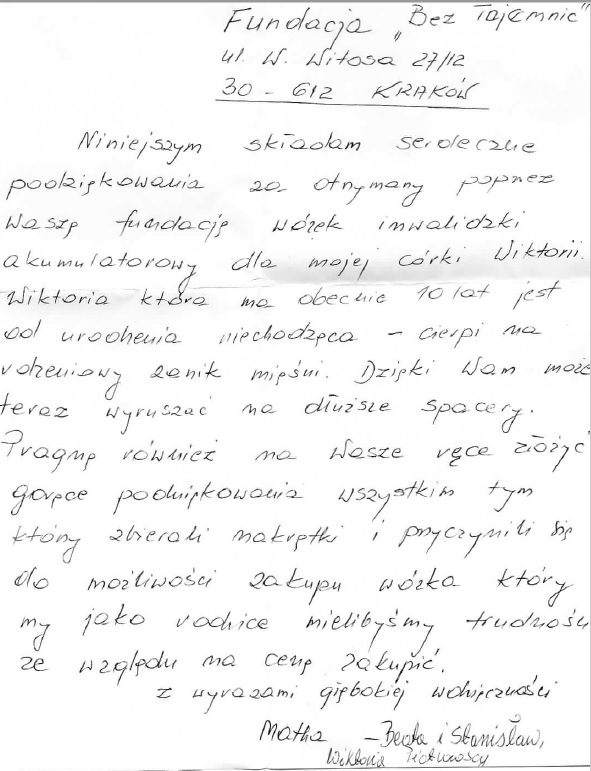 Fundacja „Bez Tajemnic"
ul. W. Witosa 27/12
30-612 KRAKÓW
Niniejszym składam serdeczne
podziękowania za otrzymany poprzez
Waszą fundację wózek inwalidzki
akumulatorowy dla mojej córki Wiktorii.
Wiktoria która ma obecnie 10 lat jest
od urodzenia niechodząca – cierpi na
rdzeniowy zanik mięśni. Dzięki Wam może
teraz wyruszać na dłuższe spacery.
Pragnę również na Wasze ręce złożyć
gorące podziękowania wszystkim tym
którzy zbierali nakrętki i przyczynili się
do możliwości zakupu wózka który
my jako rodzice mielibyśmy trudności
ze względu na cenę zakupić.
z wyrazami głębokiej wdzięczności
Matka – Beata i Stanisław,
Wiktoria Piotrowscy